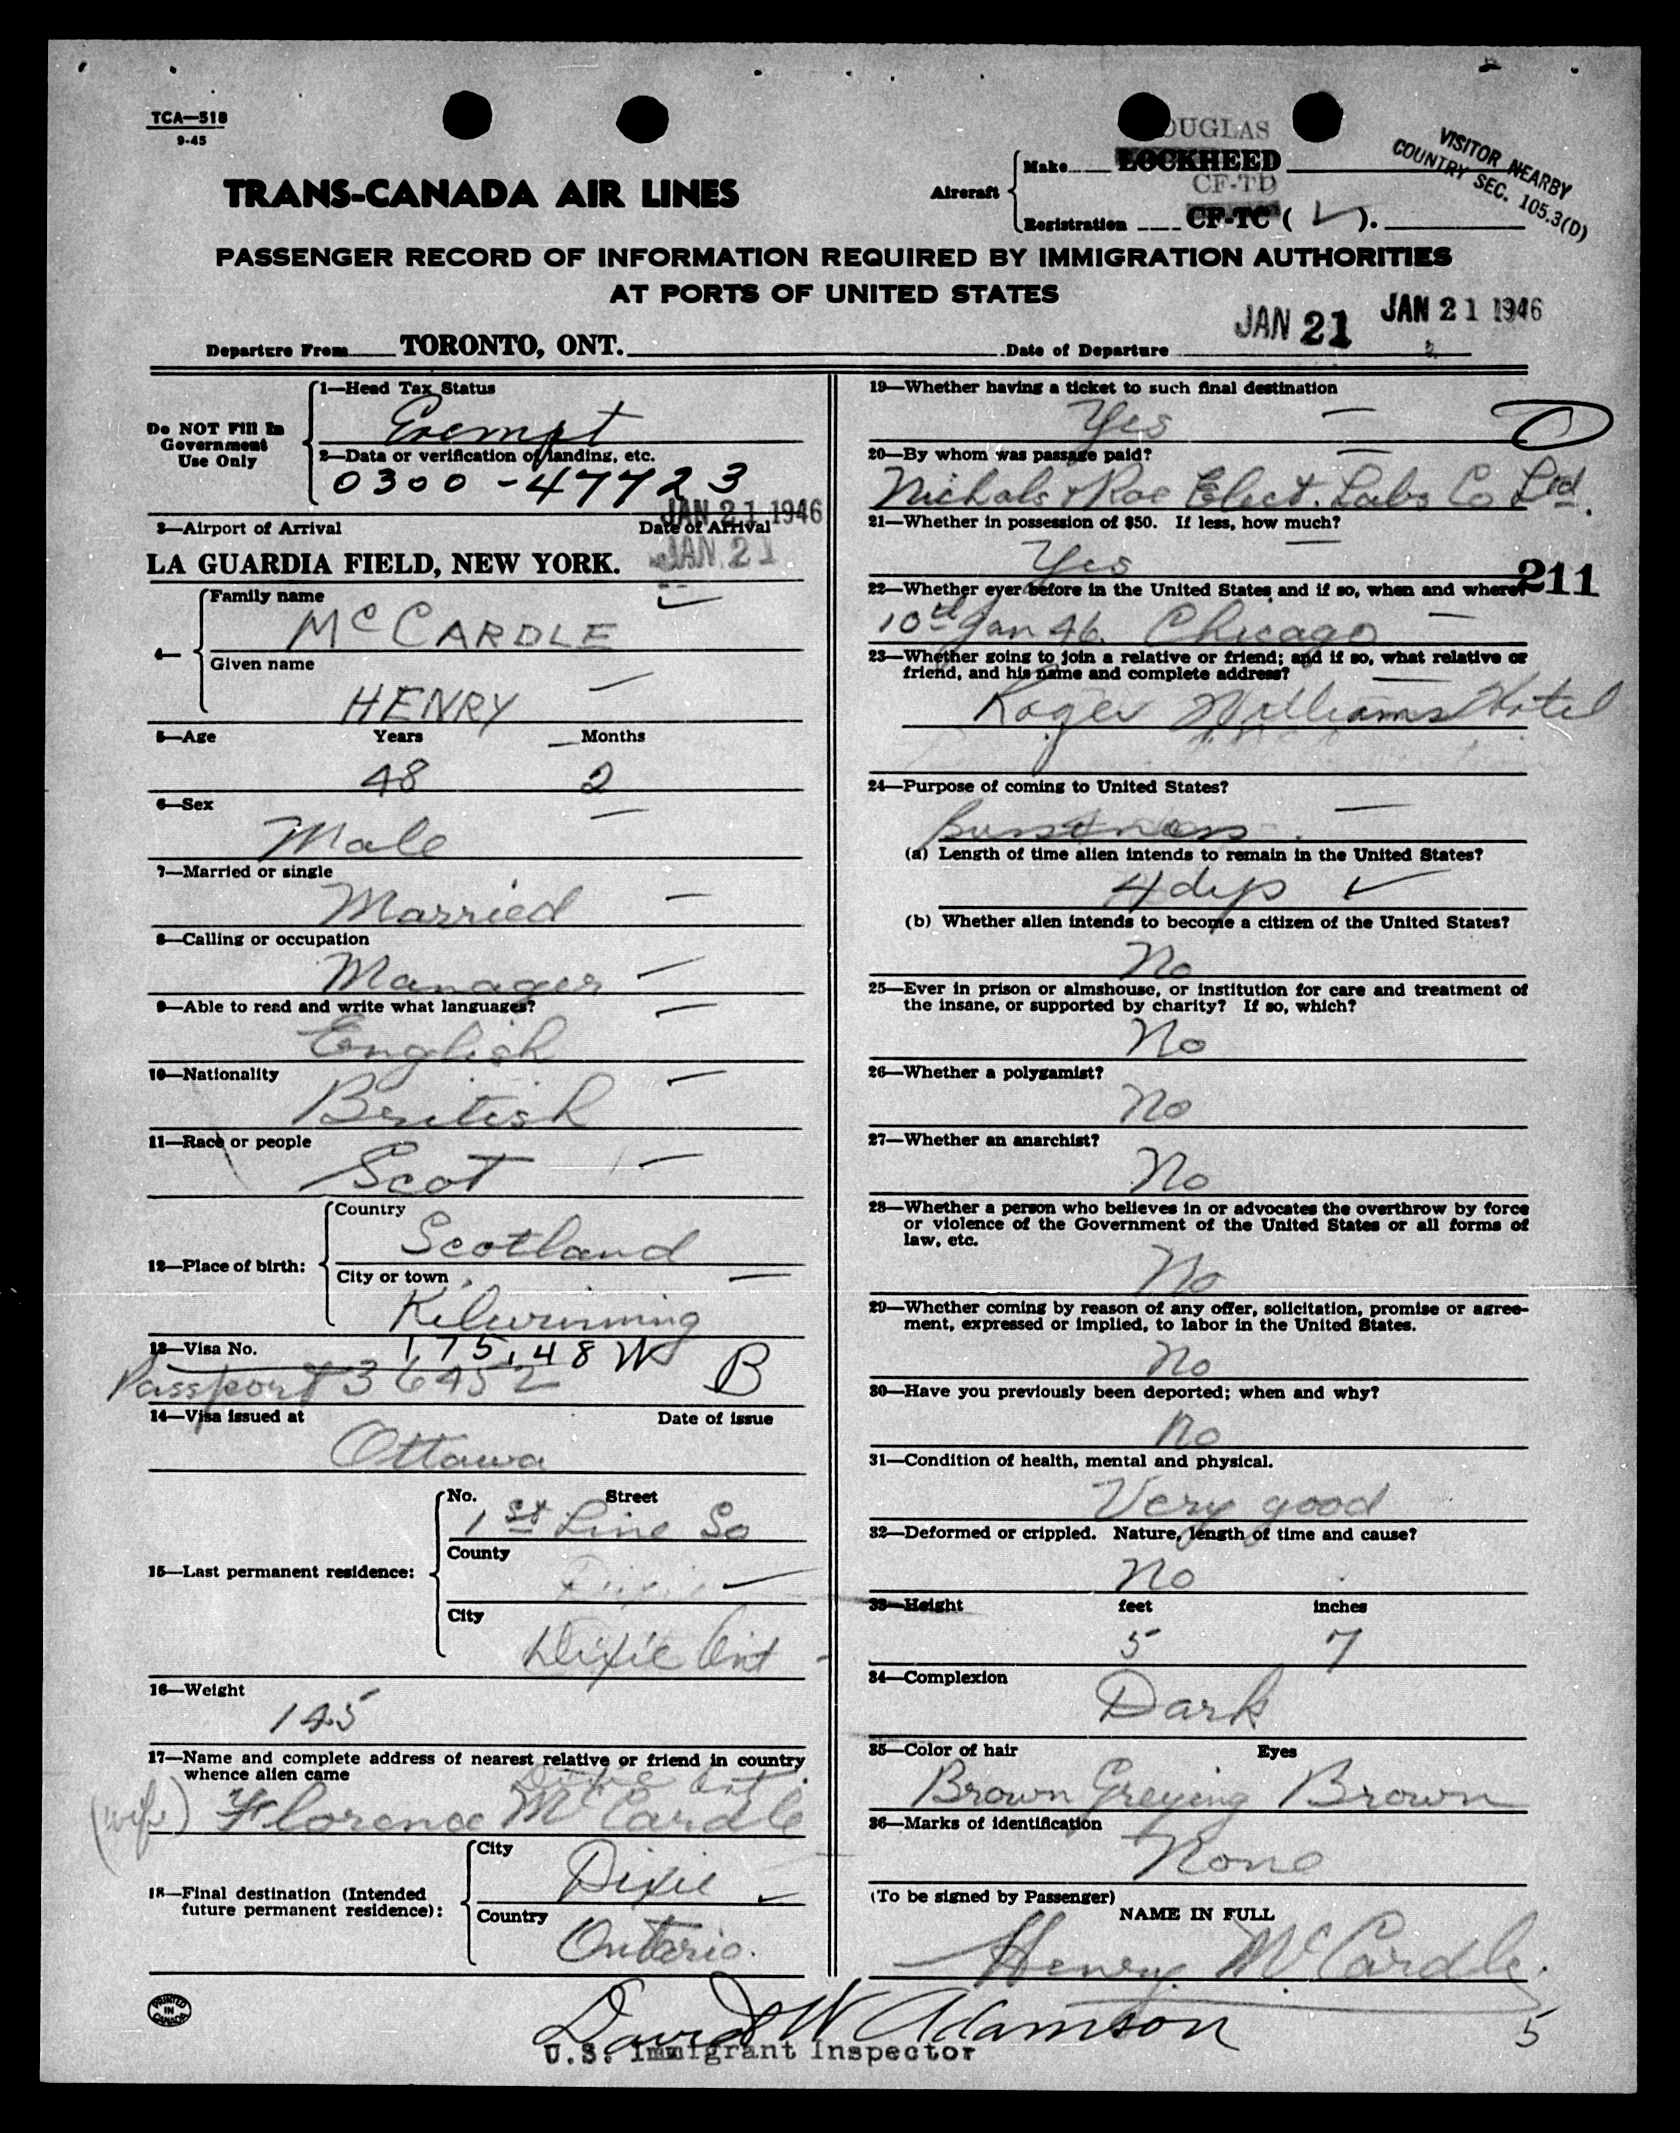 TCA—518
9-45
DOUGLAS
Make LOCKHEED
CF-TD
Aircraft
Registration CF-TC ( L ).
VISITOR NEARBY
COUNTRY SEC. 105.3(D)
TRANS-CANADA AIR LINES
PASSENGER RECORD OF INFORMATION REQUIRED BY IMMIGRATION AUTHORITIES
AT PORTS OF UNITED STATES
Departure From TORONTO, ONT. Date of Departure JAN 21 JAN 21 1946
Do NOT Fill In
Government
Use Only
1—Head Tax Status
Exempt
2—Data or verification of landing, etc.
0300-47723
3—Airport of Arrival Date of Arrival JAN 21 1946
LA GUARDIA FIELD, NEW YORK. JAN 21
4—
Family name
McCARDLE
Given name
HENRY
5—Age Years Months
48 2
6—Sex
Male
7—Married or single
Married
8—Calling or occupation
Manager
9—Able to read and write what languages?
English
10—Nationality
British
11—Race or people
Scot
12—Place of birth:
Country
Scotland
City or town
Kilwinning
13—Visa No. 175,48 W B
Passport 36452
14—Visa issued at Date of issue
Ottawa
15—Last permanent residence:
No. Street
1st Line So
County
Dixie
City
Dixie Ont
16—Weight
145
17—Name and complete address of nearest relative or friend in country
whence alien came
Dixie Ont.
(wife) Florence McCardle
18—Final destination (Intended
future permanent residence):
City
Dixie
Country
Ontario.
19—Whether having a ticket to such final destination
Yes
20—By whom was passage paid?
Nichols & Roe Elect. Labs Co Ltd.
21—Whether in possession of $50. If less, how much?
Yes
211
22—Whether ever before in the United States and if so, when and where?
10th Jan 46. Chicago
23—Whether going to join a relative or friend; and if so, what relative or
friend, and his name and complete address?
Roger Williams Hotel
24—Purpose of coming to United States?
Business
(a) Length of time alien intends to remain in the United States?
4 dys
(b) Whether alien intends to become a citizen of the United States?
No
25—Ever in prison or almshouse, or institution for care and treatment of
the insane, or supported by charity? If so, which?
No
26—Whether a polygamist?
No
27—Whether an anarchist?
No
28—Whether a person who believes in or advocates the overthrow by force
or violence of the Government of the United States or all forms of
law, etc.
No
29—Whether coming by reason of any offer, solicitation, promise or agree-
ment, expressed or implied, to labor in the United States.
No
30—Have you previously been deported; when and why?
No
31—Condition of health, mental and physical.
Very good
32—Deformed or crippled. Nature, length of time and cause?
No
33—Height feet inches
5 7
34—Complexion
Dark
35—Color of hair Eyes
Brown Greying Brown
36—Marks of identification
None
(To be signed by Passenger)
NAME IN FULL
Henry McCardle.
PRINTED
IN
CANADA
David W Adamson
U.S. Immigrant Inspector
5